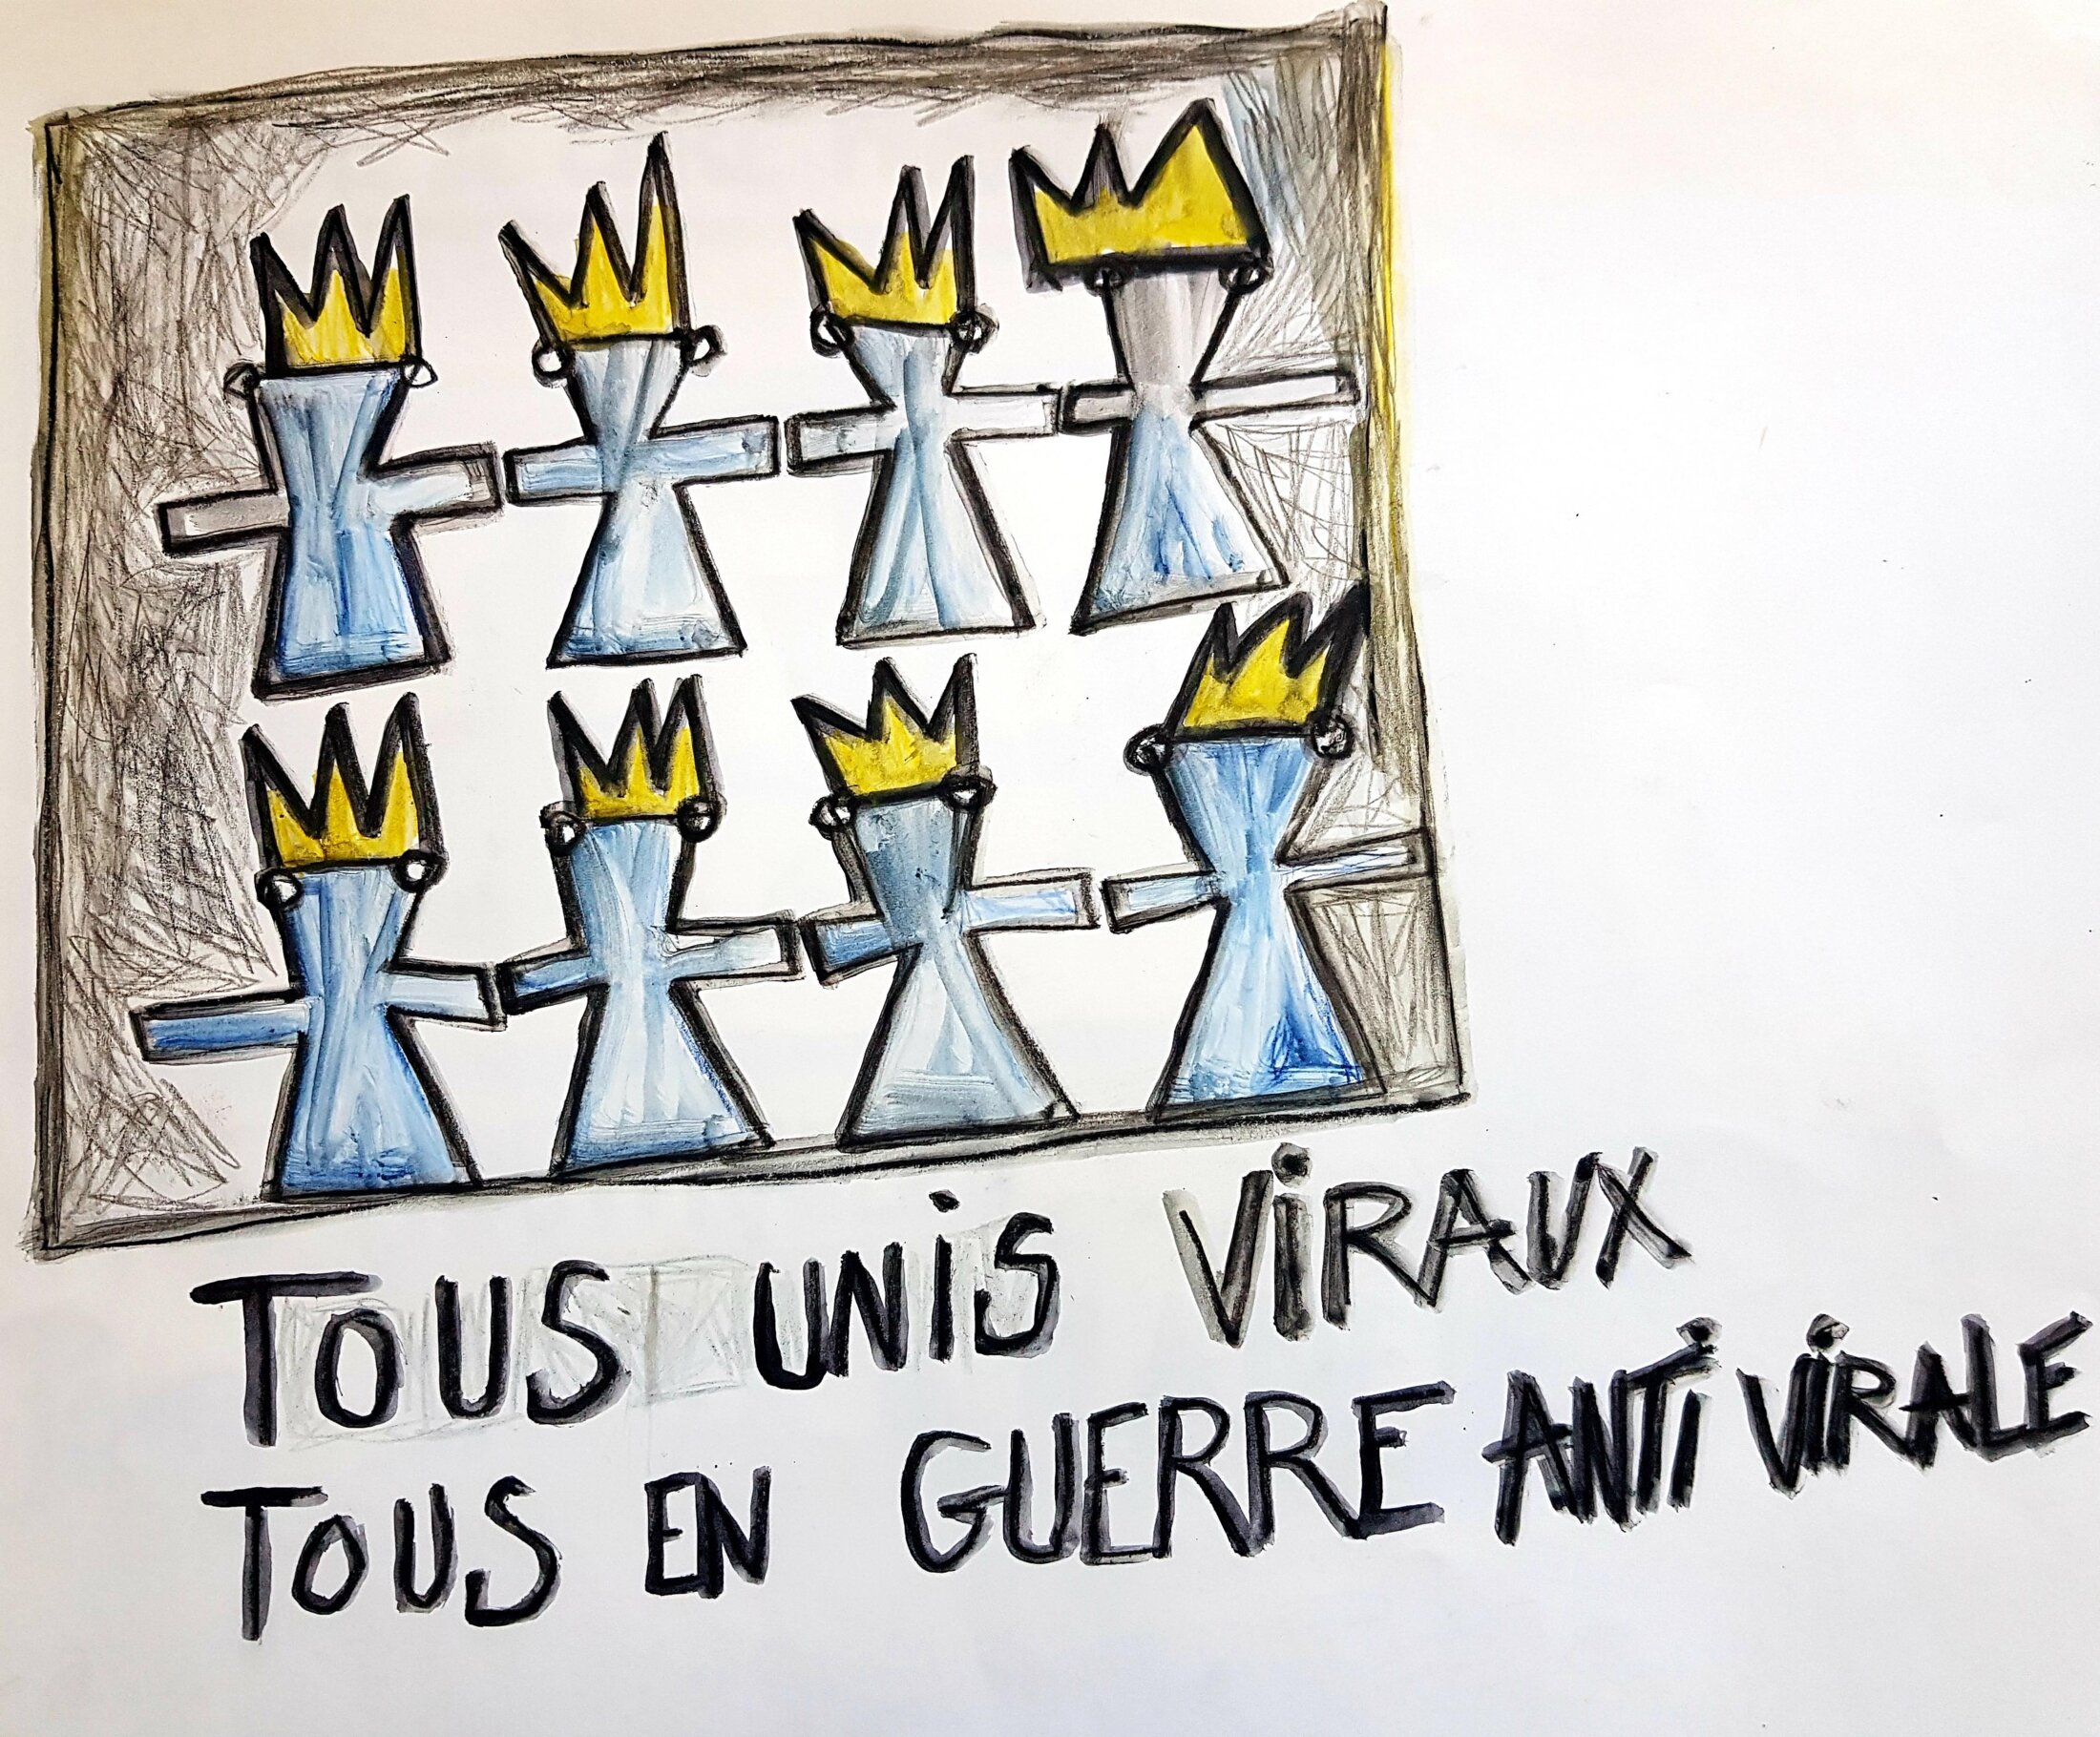 TOUS UNiS ViRAUX
TOUS EN GUERRE ANTi ViRALE